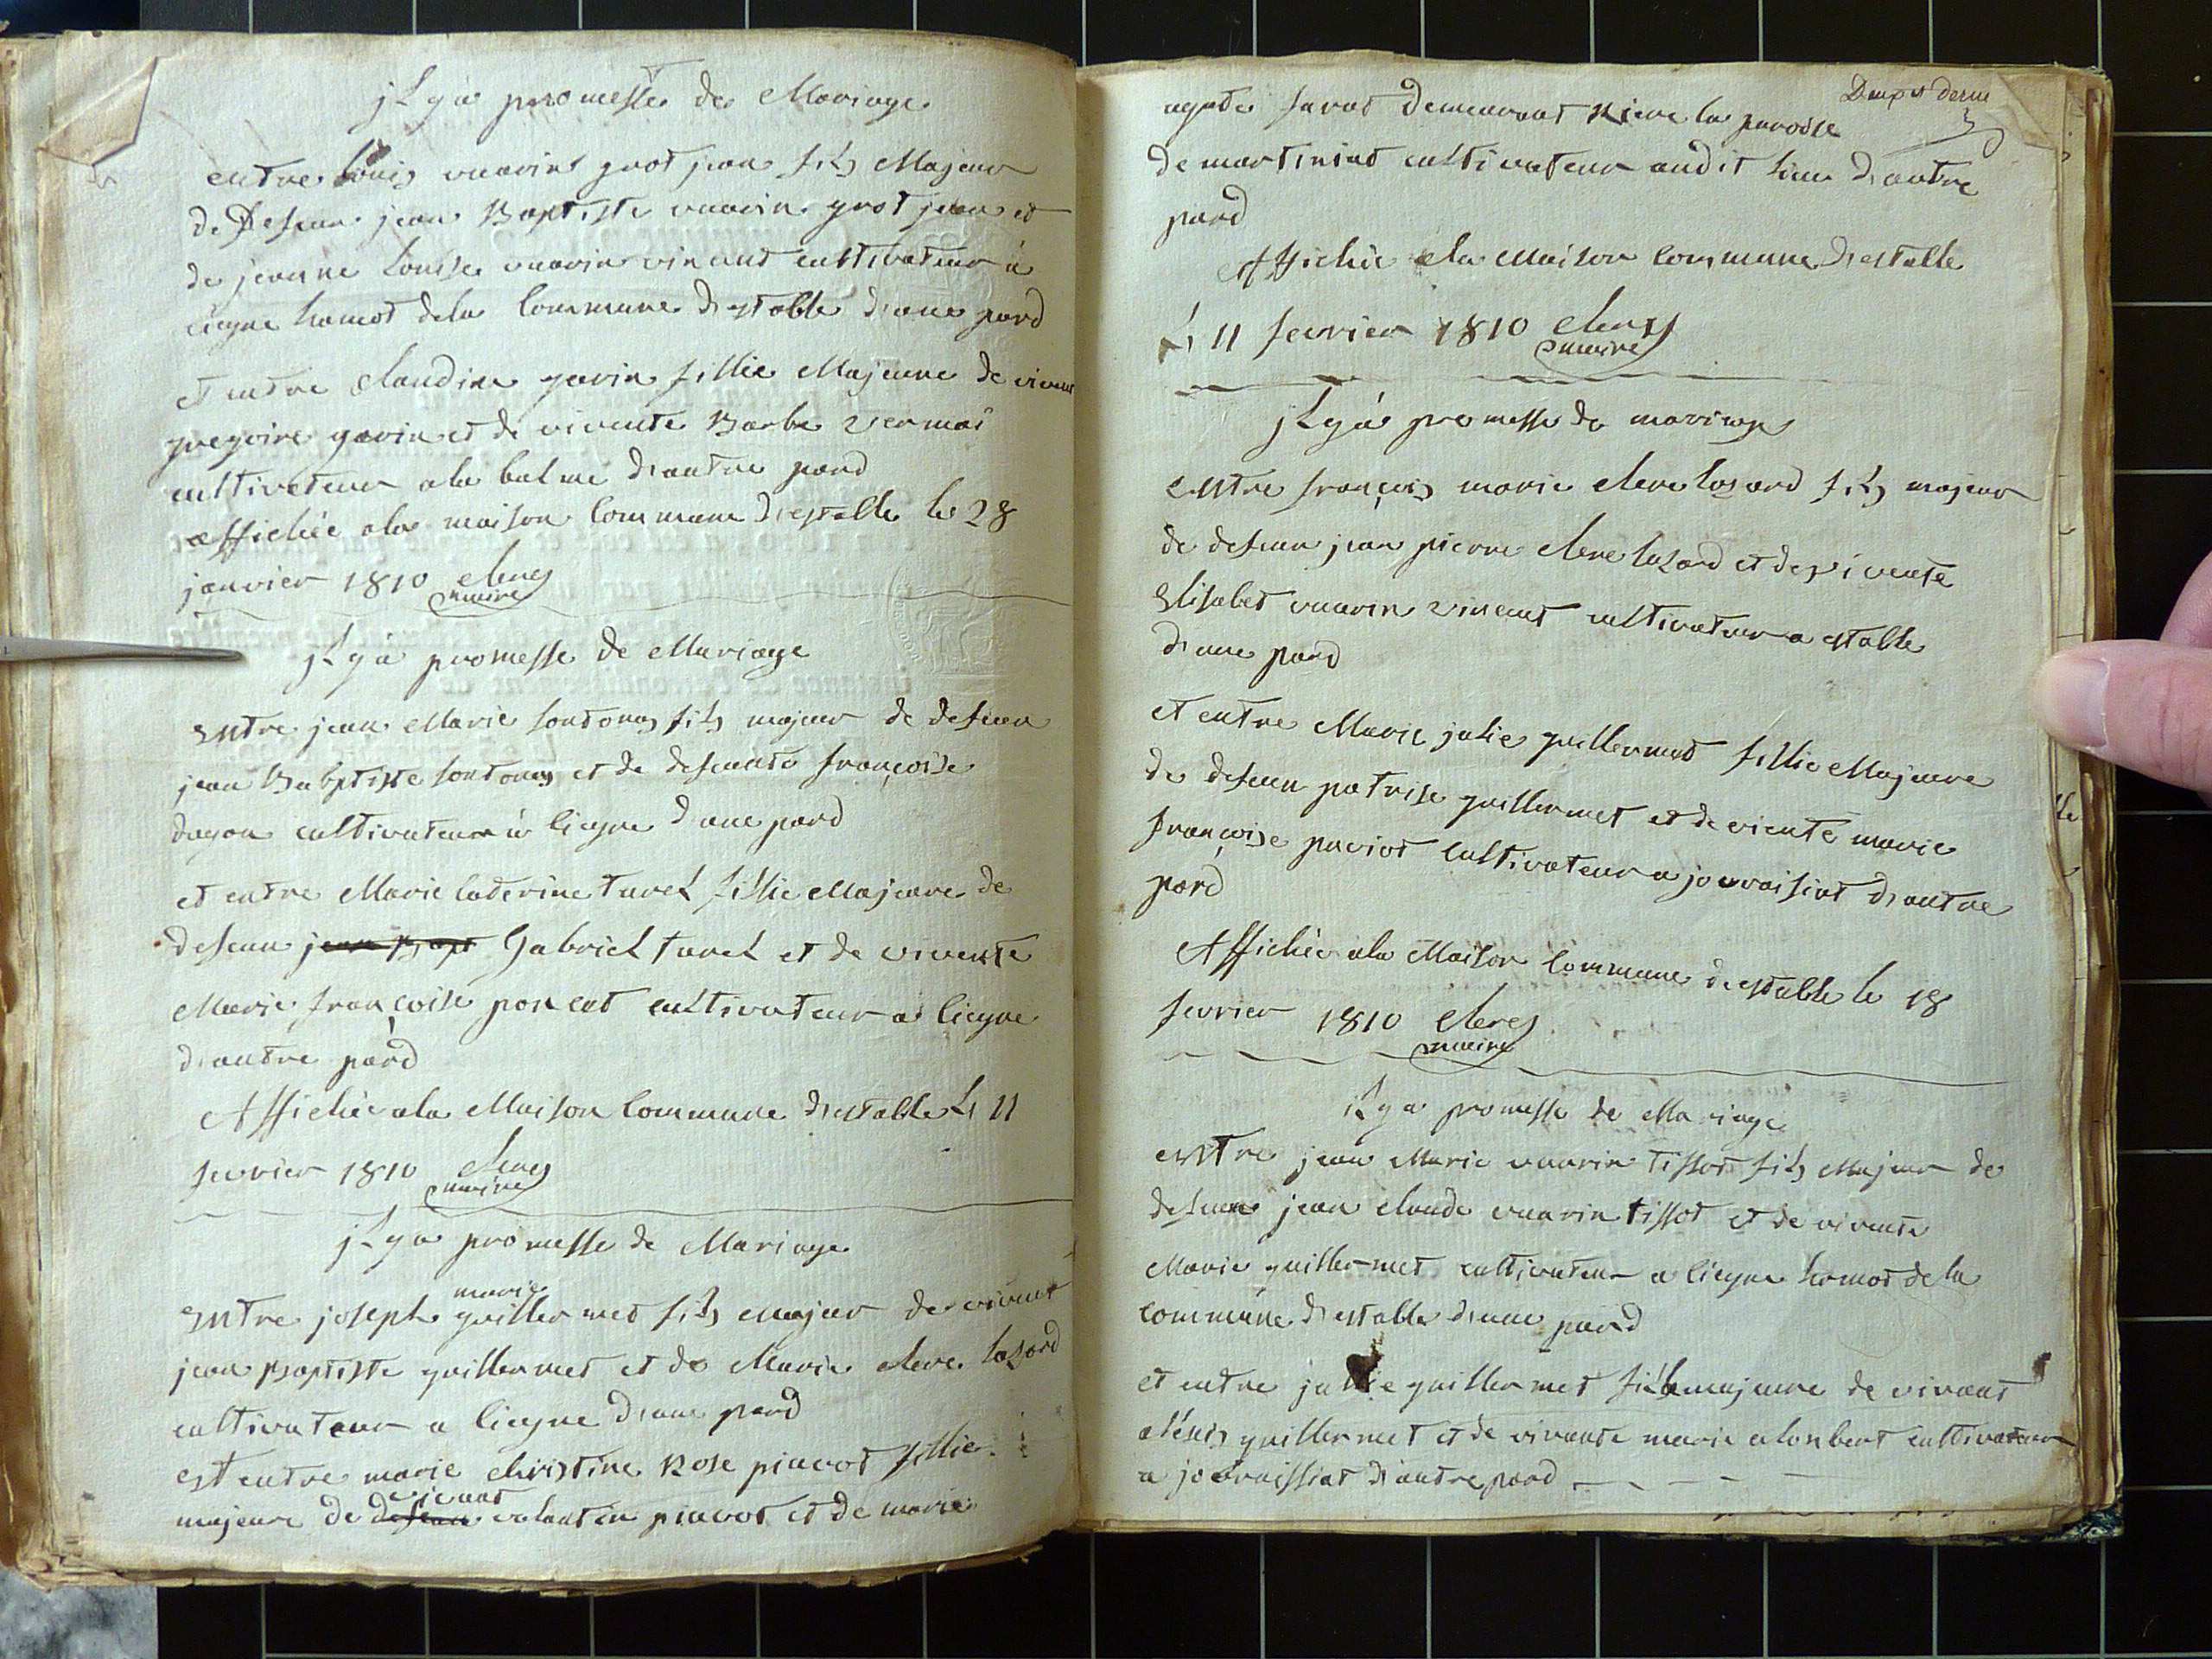 jL ya promesse de Mariage
entre louis vuarin grosjean fils Majeur
de Defeun jean Baptiste vuarin grosjean et
de jeanne Louise vuarin vincent cultivateur à
Cicyne hamot dela Commune d'estable d'une pard
et entre Claudine gavin fillie Majeure de vivent
gregoire gavin et de vivente Barbe
cultivateur ala balme d'autre pard
affichée ala maison Commune d'estable le 28
janvier 1810 Clerc
maire
jL ya promesse de Mariage
Entre jean Marie sontonas fils majeur de defeun
jean Babptiste sontonas et de defeunte françoise
cultivateur à Cicyne d'une pard
et entre Marie Caterine turel fillie Majeure de
defeun jean Bapt Gabriel turel et de vivente
Marie françoise poncet cultivateur a Cicyne
d'autre pard
Affichée ala Maison Commune d'estable Le 11
fevrier 1810 Clerc
maire
jL ya promesse de Mariage
marie
Entre joseph guillermet fils majeur de vivent
jean Baptiste guillermet et de Marie clerc lazard
cultivateur a Cicyne d'une pard
est entre marie christine Rose fillie
vivent
majeure de defeun valantin et de marie
agate demeurant Riere la paroise
de martiniat cultivateur audit lieu d'autre
pard
Affichée ala Maison Commune d'estable
Le 11 fevrier 1810 Clerc
maire
jL ya promesse de mariage
Entre françois marie clerc lazard fils majeur
de defeun jean pierre clerc lazard et de vivente
Elisabet vuarin vincent cultivateur a estable
d'une pard
et entre Marie julie guillermet fillie Majeure
de defeun patrise guillermet et de viente marie
françoise cultivateur a jouvaisiat d'autre
pard
Affichée ala Maison Commune d'estable le 18
fevrier 1810 Clerc
maire
iL ya promesse de Mariage
entre jean Marie vuarin tissot fils Majeur de
defeun jean claude vuarin tissot et de vivente
Marie guillermet cultivateur a Cicyne hamot dela
commune d'estable d'une pard
et entre julie guillermet majeure de vivant
guillermet et de vivante marie cultivateur
a d'autre pard